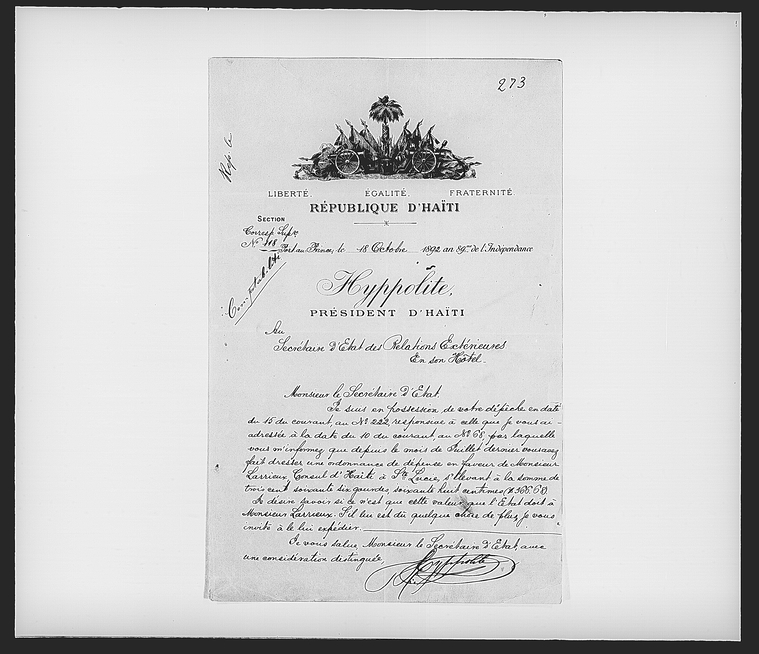 273
Rép. le
LIBERTÉ. ÉGALITÉ. FRATERNITÉ
RÉPUBLIQUE D'HAÏTI
SECTION
Corresp. Supre
No 118 Port au Prince, le 18 Octobre 1892 an 89me de l'Indépendance
Comptabilité
Hyppolite,
PRÉSIDENT D'HAÏTI
Au
Secrétaire d'Etat des Relations Extérieures
En son Hôtel.
Monsieur le Secrétaire d'Etat
Je suis en possession de votre dépêche en date
du 15 du courant, au No 222, responsive à celle que je vous ai
adressée à la date du 10 du courant, au No 68, par laquelle
vous m'informez que depuis le mois de Juillet dernier vous avez
fait dresser une ordonnance de dépense en faveur de Monsieur
Larrieux, Consul d'Haïti à Ste Lucie, s'élevant à la somme de
trois cent soixante six gourdes, soixante huit centimes,
Je désire savoir si ce n'est que cette valeur que l'Etat doit à
Monsieur Larrieux. S'il lui est dû quelque chose de plus, je vous
invite à le lui expédier.
Je vous salue, Monsieur le Secrétaire d'Etat, avec
une considération distinguée,
Hyppolite